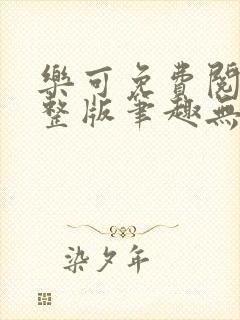 樂可免費閱
整版筆趣無
染夕年